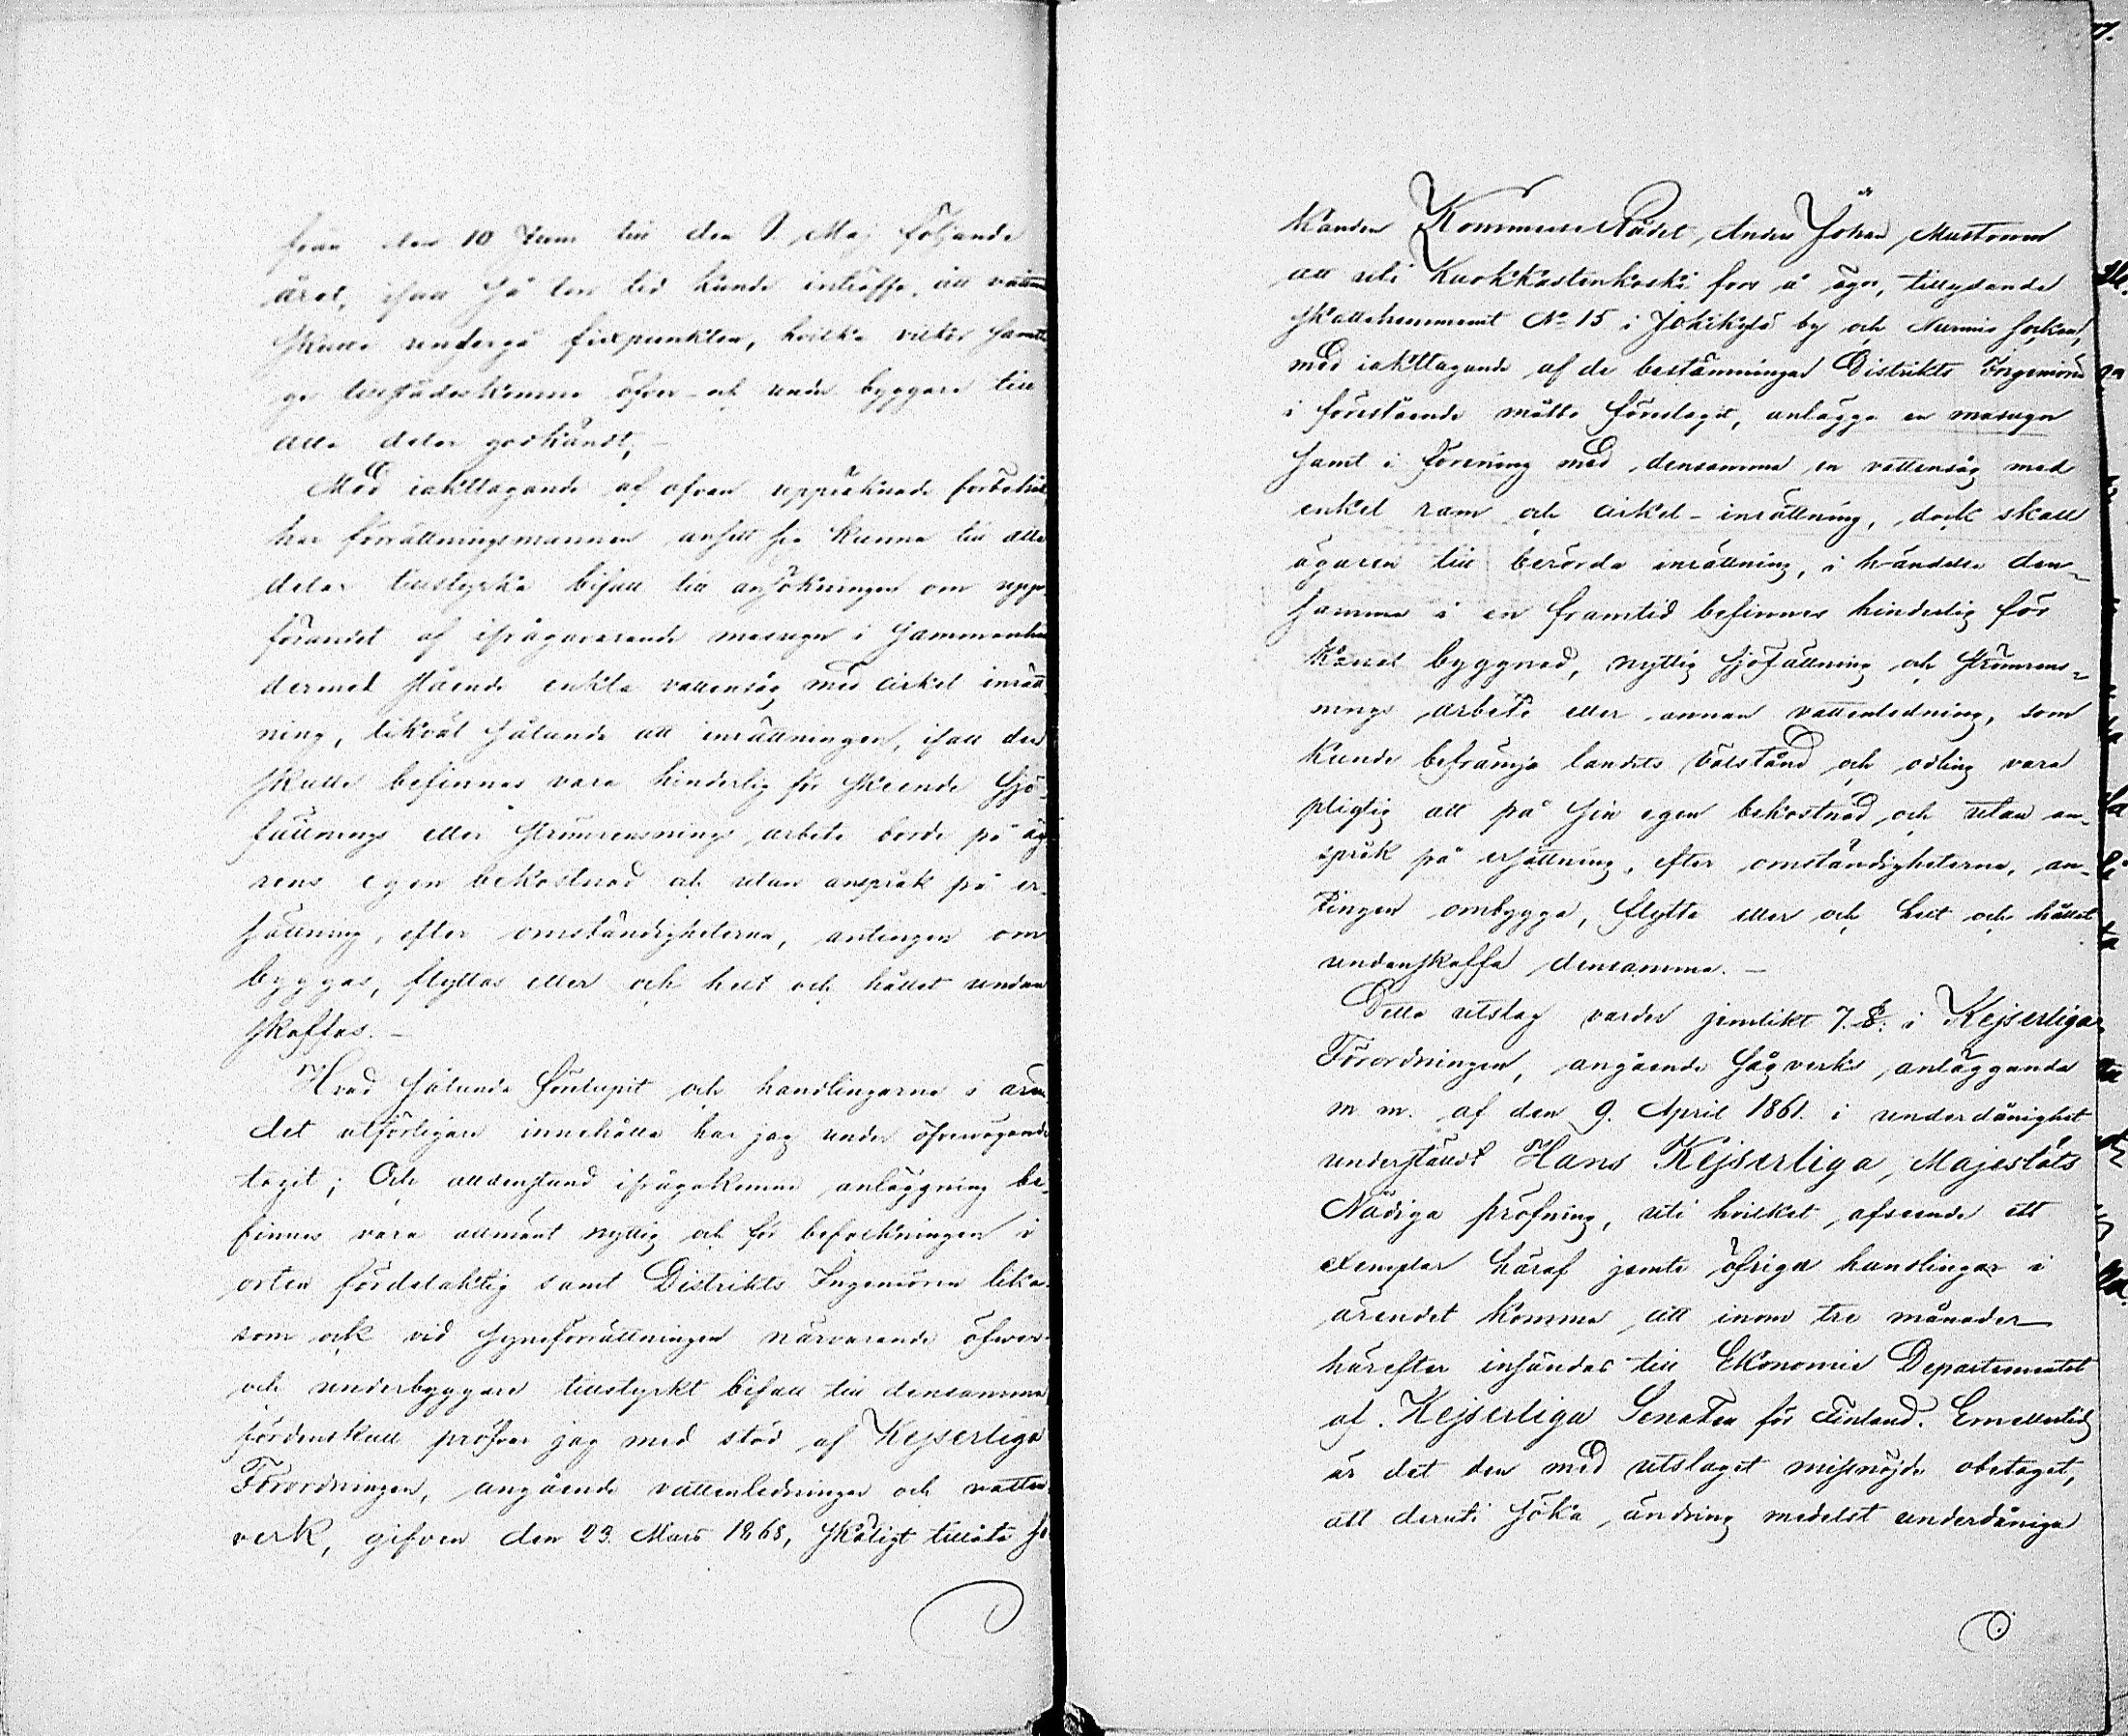 från den 10 Juni till den 1. Maj följande
året, ifall så den tid kunde inträffa, att vattnet
skulle undergå fixpunkten, hvilka vilkor samtli
ge tillstädeskomne öfver- och under byggare till
alla delar godkändt, —
Med iakttagande af ofvan uppräknade förbehåll
har förrättningsmannen ansett sig kunna till alla
delar tillstyrka bifall till ansökningen om uppö
förandet af ifrågavarande masugn i sammanhan
dermed stående enkla vattensåg med cirkel inrätt
ning, likväl sålunda att inrättningen, ifall den
skulle befinnas vara hinderlig för skeende sjö-
fällnings eller strömrensnings arbete borde på äga
rens egen bekostnad och utan anspråk på er-
sättning, efter omständigheterna, antingen om
byggas, flyttas eller och helt och hållet undan
skaffas. —
Hvad sålunda förelupit och handlingarna i ären
det utförligare innehålla har jag under öfvervägande
tagit; Och alldenstund ifrågakomne anläggning be-
finnes vara allmänt nyttig och för befolkningen i
orten fördelaktig samt Distrikts Ingeniören lika
som ock vid syneförrättningen närvarande öfver
och underbyggare tillstyrkt bifall till densamma,
fördenskull pröfvar jag med stöd af Kejserliga
Förordningen, angående vattenledningar och vatten
verk, gifven den 23. Mars 1868, skäligt tillåta sö
kanden Kommerse Rådet, Anders Johan Mustonen
att uti Kuokkastenkoski fors å ägor, tillydande
skattehemmanet No 15 i Jokikylä by och Nurmis socken,
med iakttagande af de bestämningar Distrikts Ingeniören
i förestående måtto föreslagit, anlägga en masugn
samt i förening med densamma en vattensåg med
enkel ram och cirkel-inrättning, dock skall
ägaren till berörda inrättning, i händelse den-
samma i en framtid befinnes hinderlig för
kanal byggnad, nyttig sjöfällning och strömrens-
nings arbete eller annan vattenledning, som
kunde befrämja landets välstånd och odling vara
pligtig att på sin egen bekostnad och utan an-
språk på ersättning, efter omständigheterna, an-
tingen ombygga, flytta eller och helt och hållet
undanskaffa densamma. —
Detta utslag varder jemlikt 7. §. i Kejserliga
Förordningen, angående sågverks anläggande
m. m. af den 9. April 1861. i underdånighet
underställdt Hans Kejserliga Majestäts
Nådiga pröfning, uti hvilket afseende ett
exemplar häraf jemte öfriga handlingar i
ärendet komma att inom tre månader
härefter insändas till Ekonomie Departementet
af Kejserliga Senaten för Finland. Emellertid
är det den med utslaget missnöjde obetaget,
att deruti söka ändring medelst underdåniga